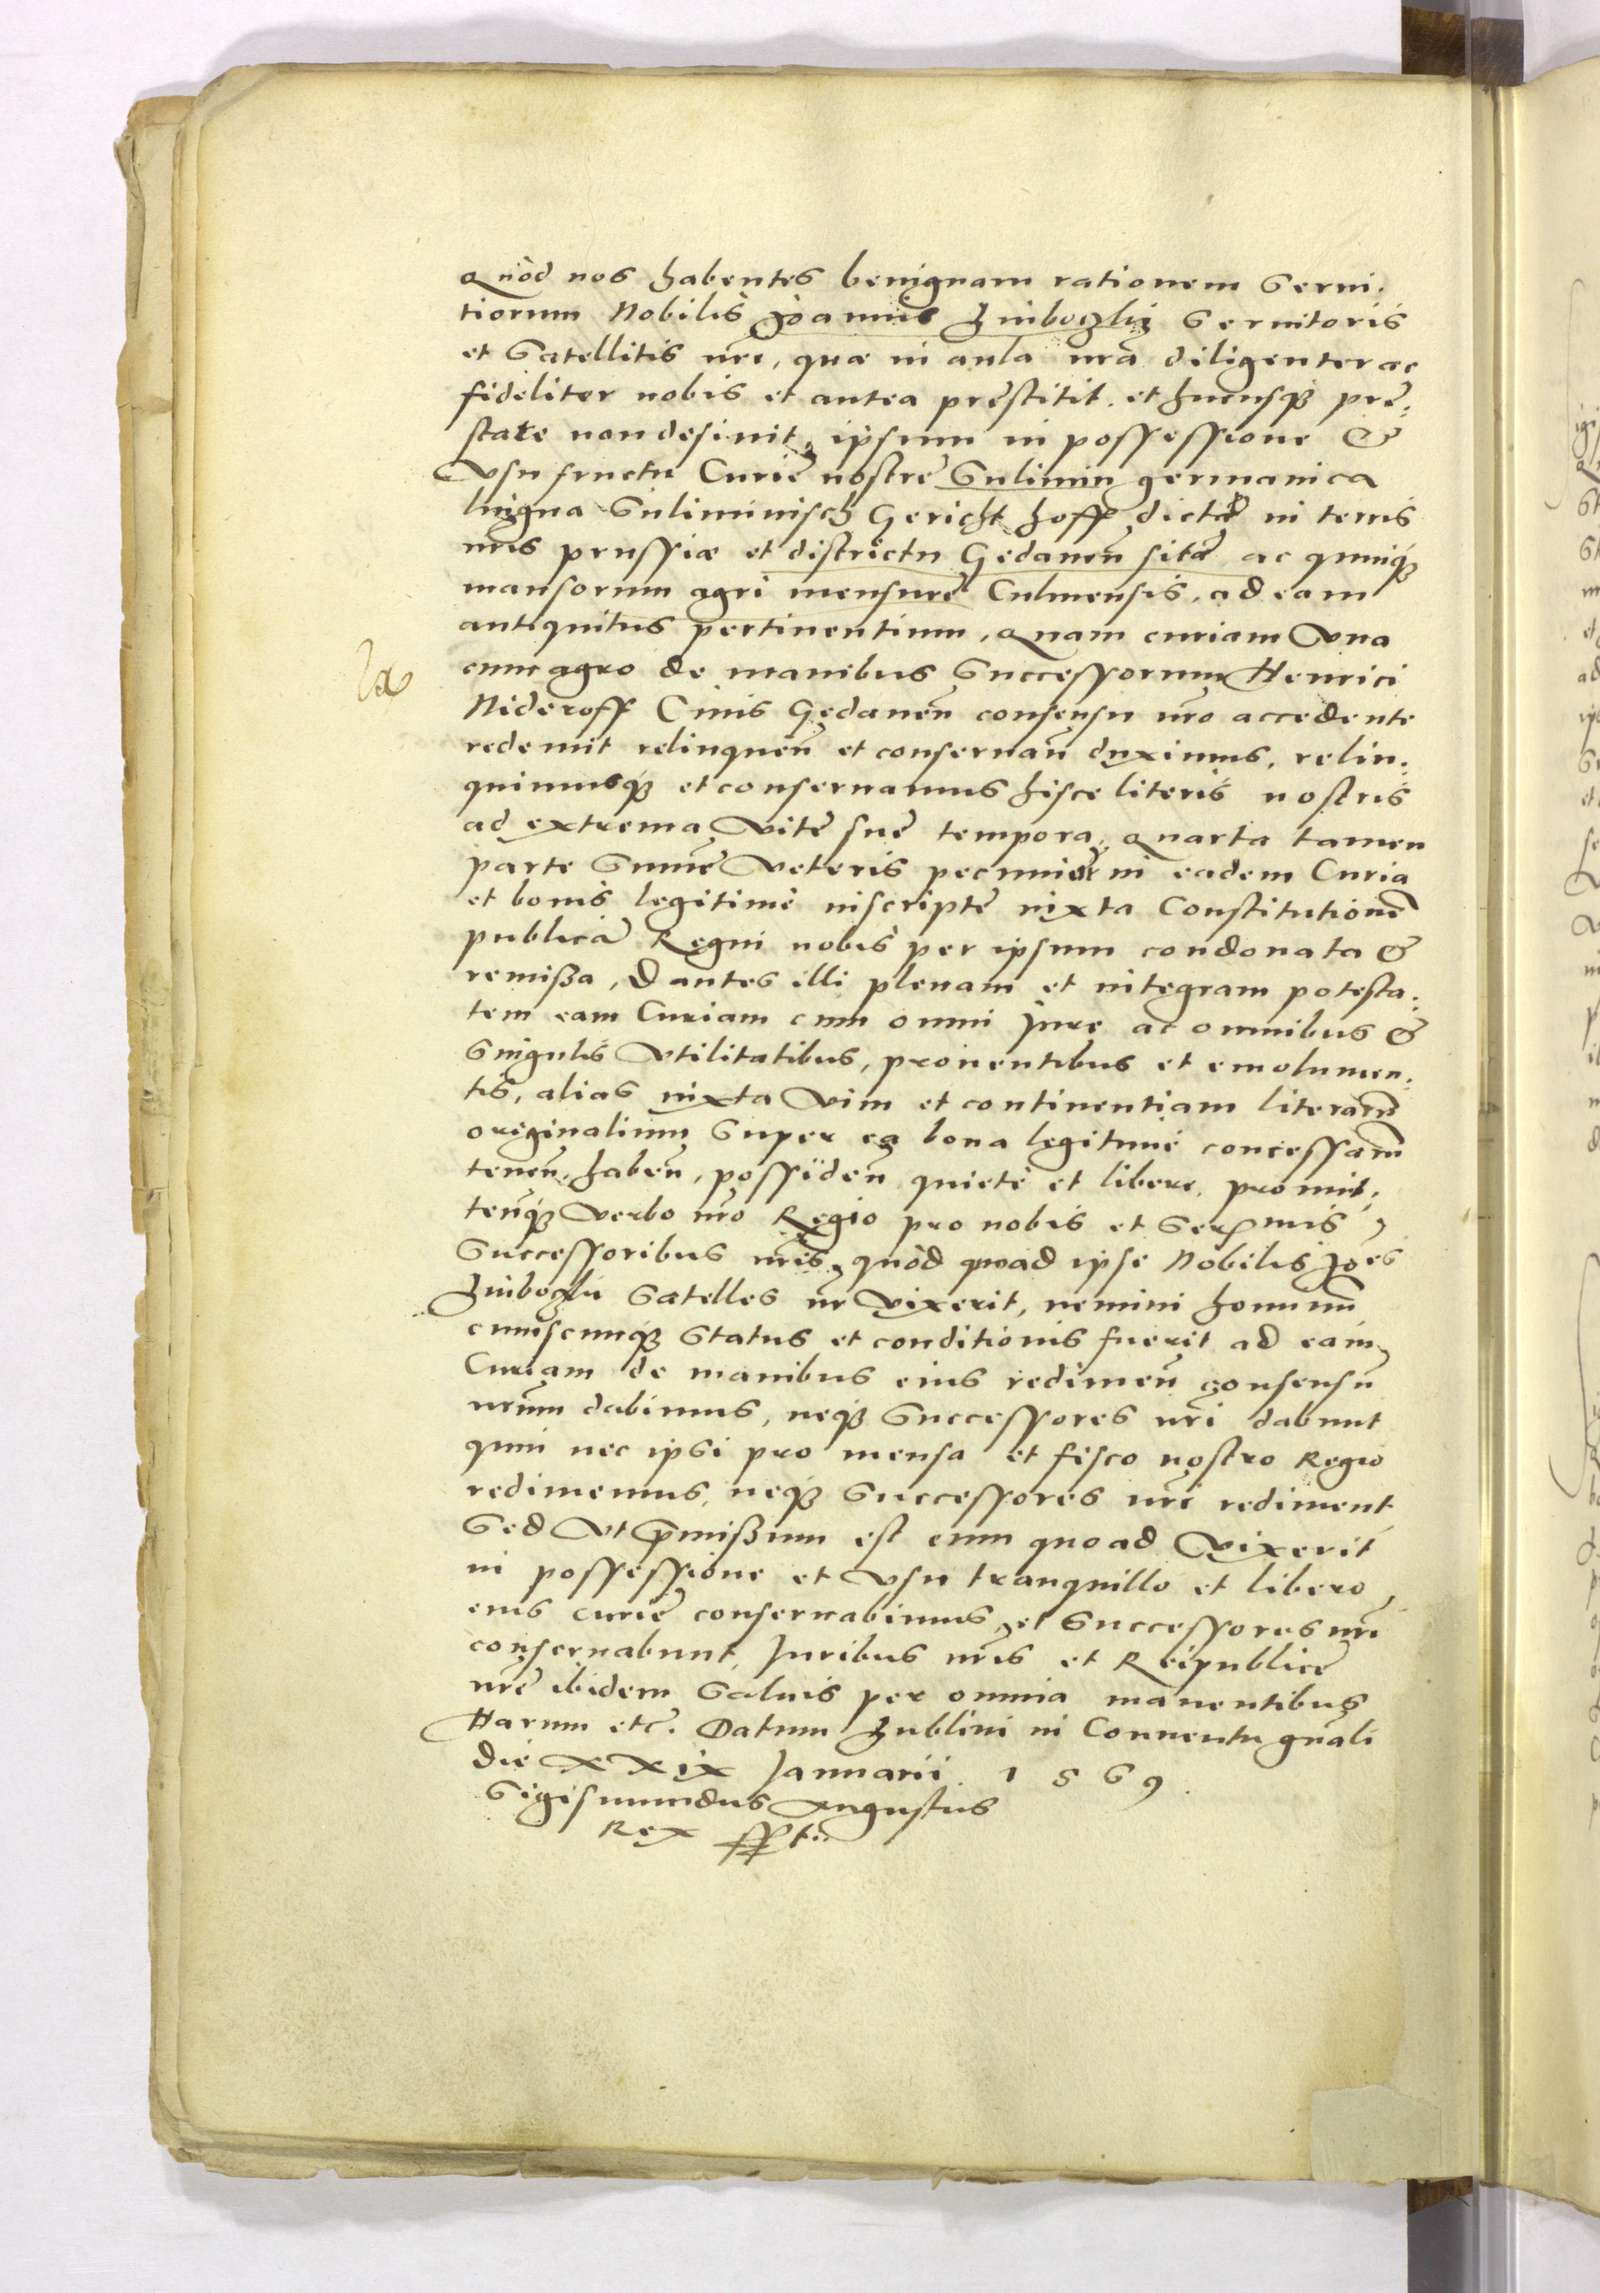 Quòd nos habentes benignam rationem Serui-
tiorum Nobilis Joannis Luiboczky Seruitoris
et Satellitis nri, quæ in aula nra diligenter ac
fideliter nobis et antea prestitit, et hucusq pre-
stare non desinit, ipsum in possessione &
Vsu fructu Curię nostrę Sulimin germanica
lingua Suliminisch Gericht hoff dicta in terris
nris prussiæ et districtu Gedanen sita ac quinq
mansorum agri mensurę Culmensis, ad eam
antiquitus pertinentium, Quam curiam Vna
cum agro de manibus Successorum Henrici
Nideroff Ciuis Gedanen consensu nro accedente
redemit relinquen et conseruan duximus, relin-
quimusq et conseruamus hisce literis nostris
ad extrema Vitę suę tempora, Quarta tamen
parte Sumę Veteris pecuniæ in eadem Curia
et bonis legitimè inscriptę iuxta Constitutionē
publicā Regni nobis per ipsum condonata &
remißa, Dantes illi plenam et integram potesta-
tem eam Curiam cum omni Jure ac omnibus &
Singulis Vtilitatibus, prouentibus et emolumen-
tis, alias iuxta Vim et continentiam literarū
originalium Super ea bona legitimè concessarū
tenen, haben, possiden quietè et liberè, promit-
tenq Verbo nro Regio pro nobis et Sermis
Successoribus nris, quòd quoad ipse Nobilis Joes
Satelles nr Vixerit, nemini hominū
cuiuscunq Status et conditionis fuerit ad eam
Curiam de manibus eius redimen consensū
nrum dabimus, neq Successores nri dabunt
quin nec ipsi pro mensa et fisco nostro Regio
redimemus, neq Successores nri rediment
Sed Vt pmißum est eum quoad Vixerit
in possessione et Vsu tranquillo et libero
eius Curię conseruabimus, et Successores nri
conseruabunt, Juribus nris et Reipublicę
nrę ibidem Saluis per omnia manentibus
Harum etc. Datum Lublini in Conuentu gnali
die XXIX Januarii 1569
Sigismundus Augustus
Rex